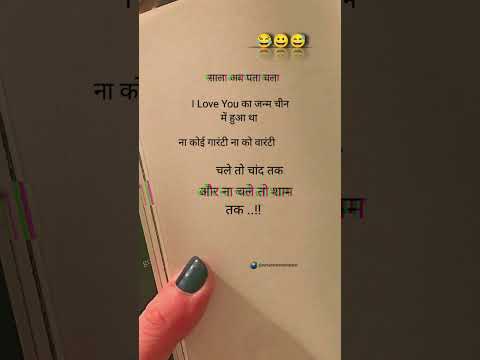 😂😀😅
साला अब पता चला
I Love You का जन्म चीन
में हुआ था
ना कोई गारंटी ना को वारंटी
चले तो चांद तक
और ना चले तो शाम
तक ..!!